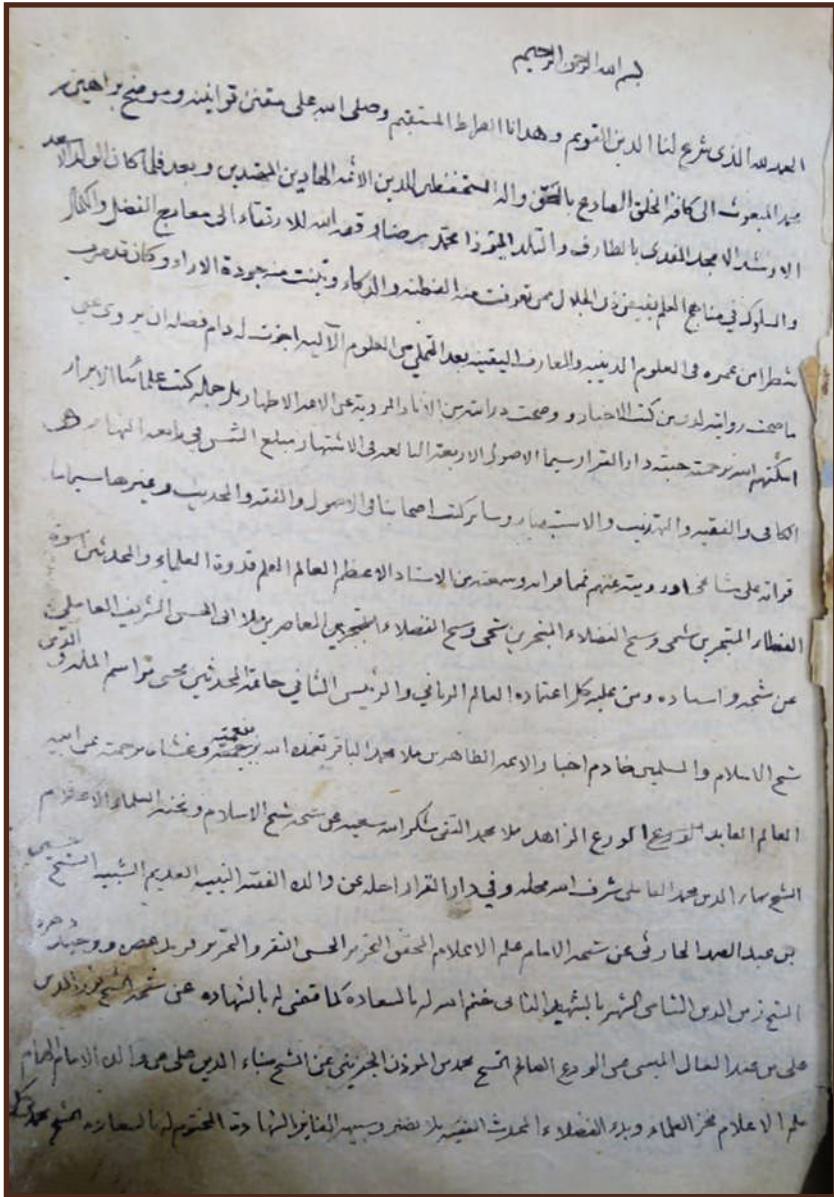 بسم الله الرحمن الرحيم
الحمد لله الذى شرع لنا الدين القويم وهدانا الصراط المستقيم وصلى الله على مقنن قوانينه وموضح براهينه
محمد المبعوث الى كافة الخلق الصادع بالحق واله المستحفظين للدين الائمه الهادين المهتدين وبعد فلما كان الولد الاسعد
الارشد الامجد المفدى بالطارف والتالد الميرزا محمد رضا وفقه الله للارتقاء الى معارج الفضل والكمال
والسلوك في مناهج العلم بفيض ذى الجلال ممن تعرفت منه الفطنه والذكاء وتبينت منه جودة الاراء وكان قد صرف
شطرا من عمره فى العلوم الدينيه والمعارف اليقينيه بعد التملي من العلوم الآليه اجزت له دام فضله ان يروى عني
ما صحت روايته لدى من كتب الاخبار ووضحت درايته من الاثار المرويه عن الائمه الاطهار بل جملة كتب علمائنا الابرار
اسكنهم الله برحمته جنته دار القرار سيما الاصول الاربعة البالغه فى الاشتهار مبلغ الشمس في رابعة النهار هى
الكافى والفقيه والتهذيب والاستبصار وسائر كتب اصحابنا فى الاصول والفقه والحديث وغيرها سيما ما
قراته على مشايخى اورويته عنهم فما قراته وسمعته من الاستاد الاعظم العالم العلم قدوة العلماء والمحدثين اسوة
الفضلاء المتبحرين شيخى وشيخ الفضلاء المعاصرين ملا ابى الحسن الشريف العاملى
عن شيخه واستاده ومن عليه كل اعتماده العالم الربانى والرئيس الثانى خاتمة المحدثين محيى مراسم المله والدين
شيخ الاسلام والمسلمين خادم اخبار الائمه الطاهرين ملا محمد الباقر تغمده الله بنعمته وغشاه برحمته عن ابيه
العالم العابد الورع الزاهد ملا محمد التقى شكر الله سعيه عن شيخه شيخ الاسلام وفخر العلماء الاعلام
الشيخ بهاء الدين محمد العاملى شرف الله محله وفي دار القرار احله عن والده الفقيه النبيه العديم الشبيه الشيخ حسين
بن عبد الصمد الحارثى عن شيخه الامام علم الاعلام المحقق النحرير الحسن التقرير والتحرير فريد عصره ووحيد دهره
الشيخ زين الدين الشامى الشهير بالشهيد الثانى ختم الله له بالسعاده كما قضى له بالشهاده عن شيخه الشيخ نور الدين
على بن عبد العال الميسى عن الورع العالم الشيخ محمد بن الموذن الجزينى عن الشيخ ضياء الدين على عن والده الامام الهمام
علم الاعلام فخر العلماء وبدر الفضلاء المحدث الفقيه بلا نظير وشبيه الفايز بالشهادة المختوم له بالسعاده الشيخ محمد